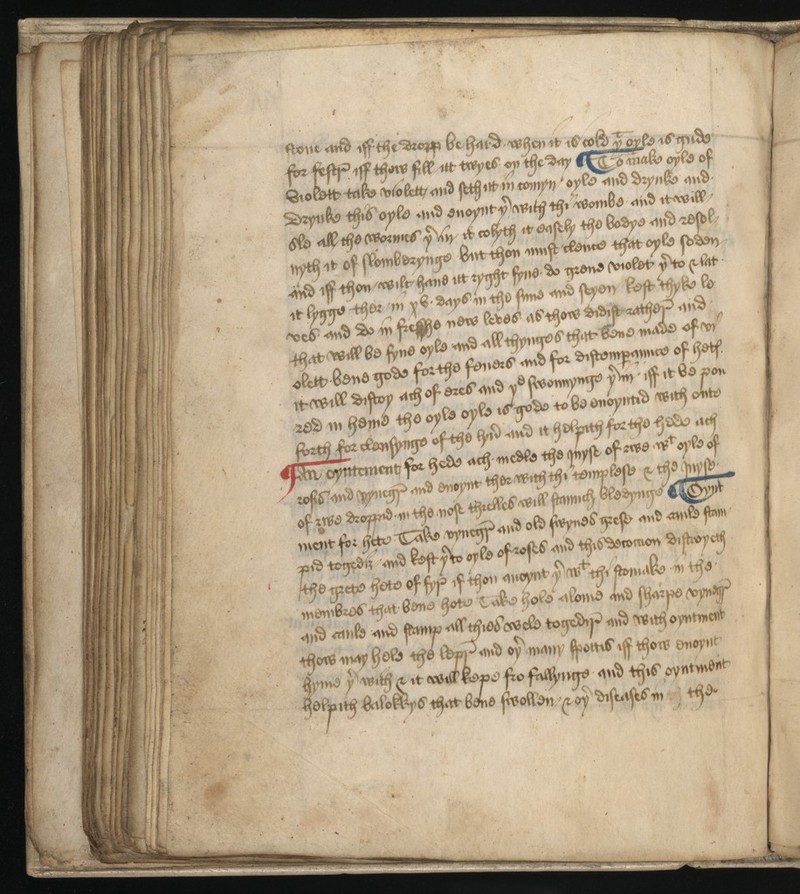 stone and iff the dropp be hard when it is cold yᵉ oyle is gude
for festʳ iff thow fill it twyes on the day ¶ To make oyle of
violett take violett and seth it in comyn oyle and drynke and
Drynke this oyle and enoynt yʳ with thi wombe and it will
sle all the wormes yʳ in it colyth it easely the bodye and resol
nyth it of slomberynge but thou must clence that oyle soden
and iff thou wilt have it ryght fyne do grene violet yʳ to & lat
it lygge ther in xv days in the sune and seyen lest thyke le
ves and do in fresshe new leves as thow didist rather and
that will be fyne oyle and all thynges that bene made of vi
olett bene gode for the fevers and for distempance of hetʳ
it will distroy ach of eres and yᵉ swonnynge yʳ in iff it be pou
red in hemd the oyle oyle is gode to be enoyntid with onto
forth for clensynge of the and it helpith for the hede ach
¶ An oyntement for hede ach medle the Juyse of rwe wᵗ oyle of
rosis and vynegʳ and enoynt ther with thi templese & the Juyse
of rwe droppid in the nose threlles will stannch bledynge ¶ Oynt
ment for hete Take vynegʳ and old swynes grese and caule stam
pid togedir and kest yʳto oyle of roses and this decocion distroyeth
the grete hete of fyrʳ if thou anoynt yʳ wᵗ thi stomake in the
membres that bene hote Take hole alome and sharpe vynegʳ
and caule and stamp all thies wele togedirʳ and with oyntment
thow may hele the leprʳ and oyʳ many spottis iff thow enoynt
hyme yʳ with & it will kepe fro fallynge and this oyntment
helpith balokkys that bene swollen & oyʳ diseases in the